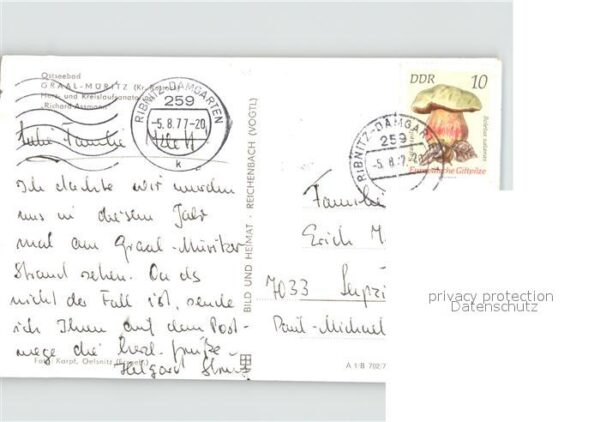 Ostseebad
GRAAL-MÜRITZ (Kr. Rostock)
Herz- und Kreislaufsanatorium
„Richard Assmann"
RIBNITZ-DAMGARTEN
259
-5.8.77-20
k
Familie
Ich dachte wir würden
uns in diesem Jahr
mal am Graal-Müritzer
Strand sehen. Da das
nicht der Fall ist, sende
ich Ihnen auf dem Post-
wege die herzl. Grüße
Helgard
Foto: Karpf, Oelsnitz (Erzgeb.)
BILD UND HEIMAT · REICHENBACH (VOGTL)
A 1·B 702/7
DDR 10
Boletus satanas
Satanspilz
Europäische Giftpilze
RIBNITZ-DAMGARTEN
259
-5.8.77-20
Familie
Erich M
7033 Leipzi
Paul-Michael
privacy protection
Datenschutz